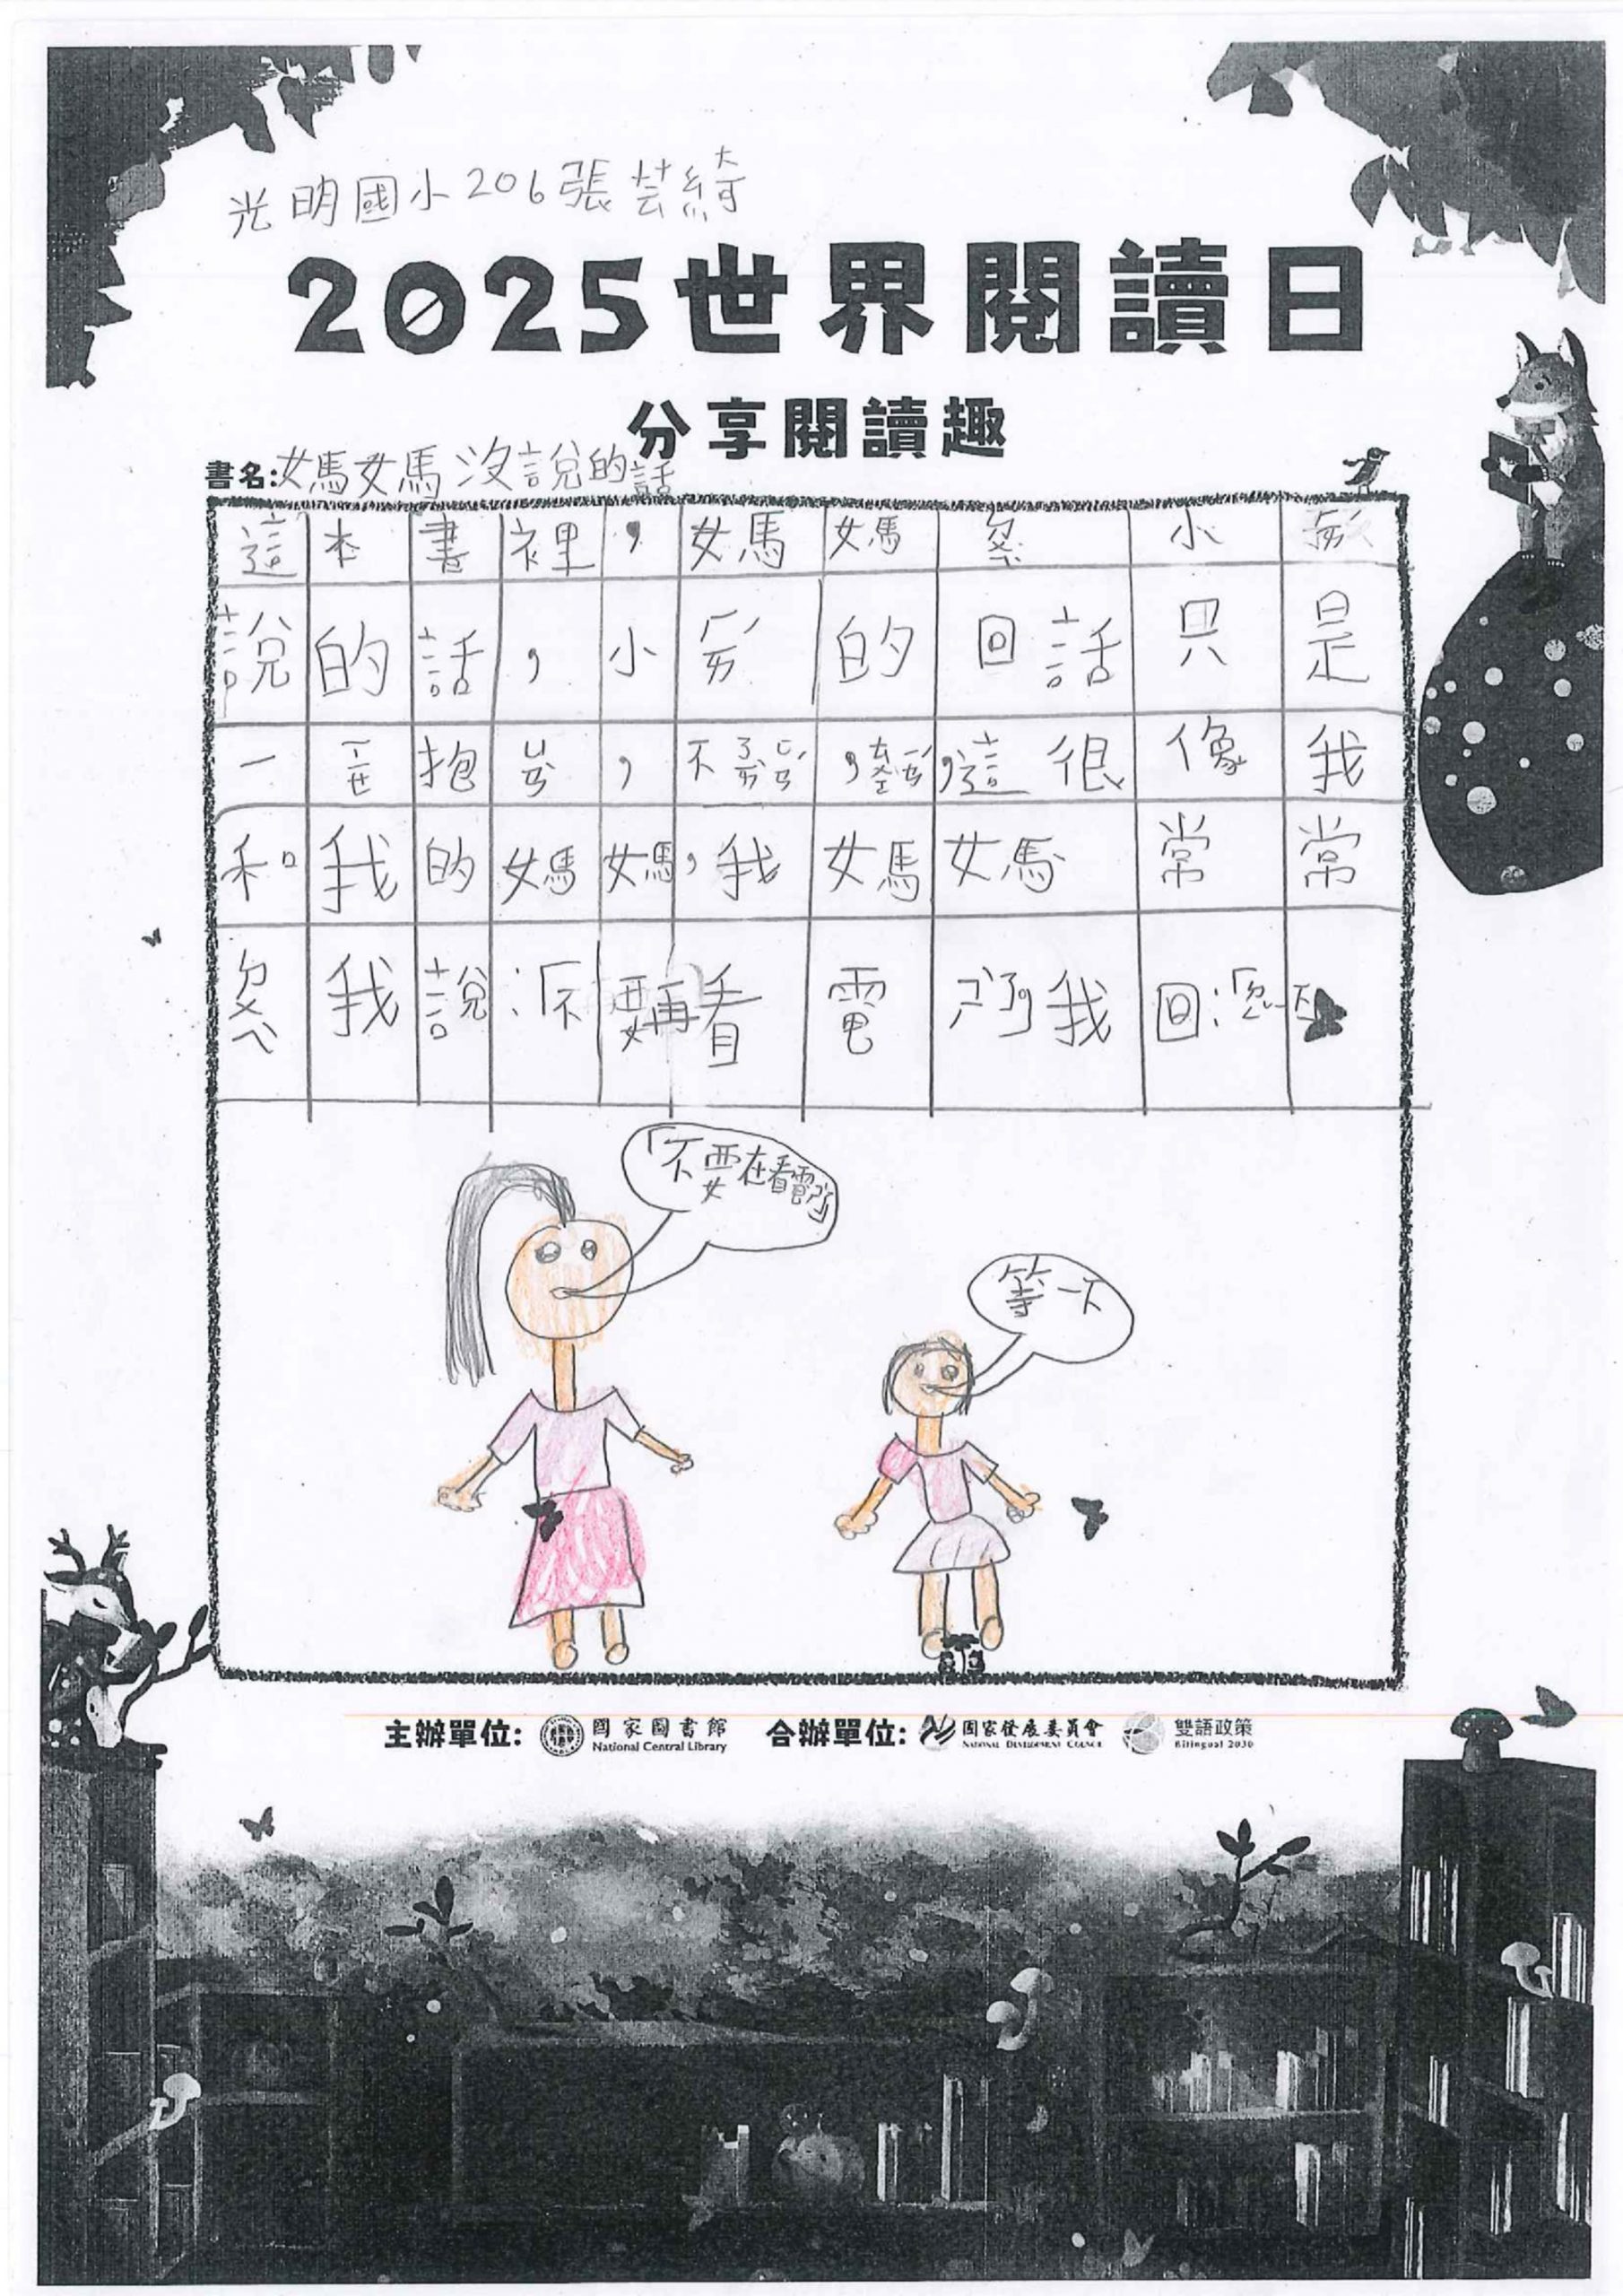 光明國小206張芸綺
2025世界閱讀日
分享閱讀趣
書名:媽媽沒說的話
這本書裡,媽媽 小
說的話,小ㄞˋ的回話只是
一 抱 ,不 , ,這很像我
和我的媽媽,我媽媽常常
我說:「不要再看電 我回:「
「不要在看電 」
等一下
主辦單位: 國家圖書館 合辦單位: 國家發展委員會 雙語政策
National Central Library NATIONAL DEVELOPMENT COUNCIL Bilingual 2030